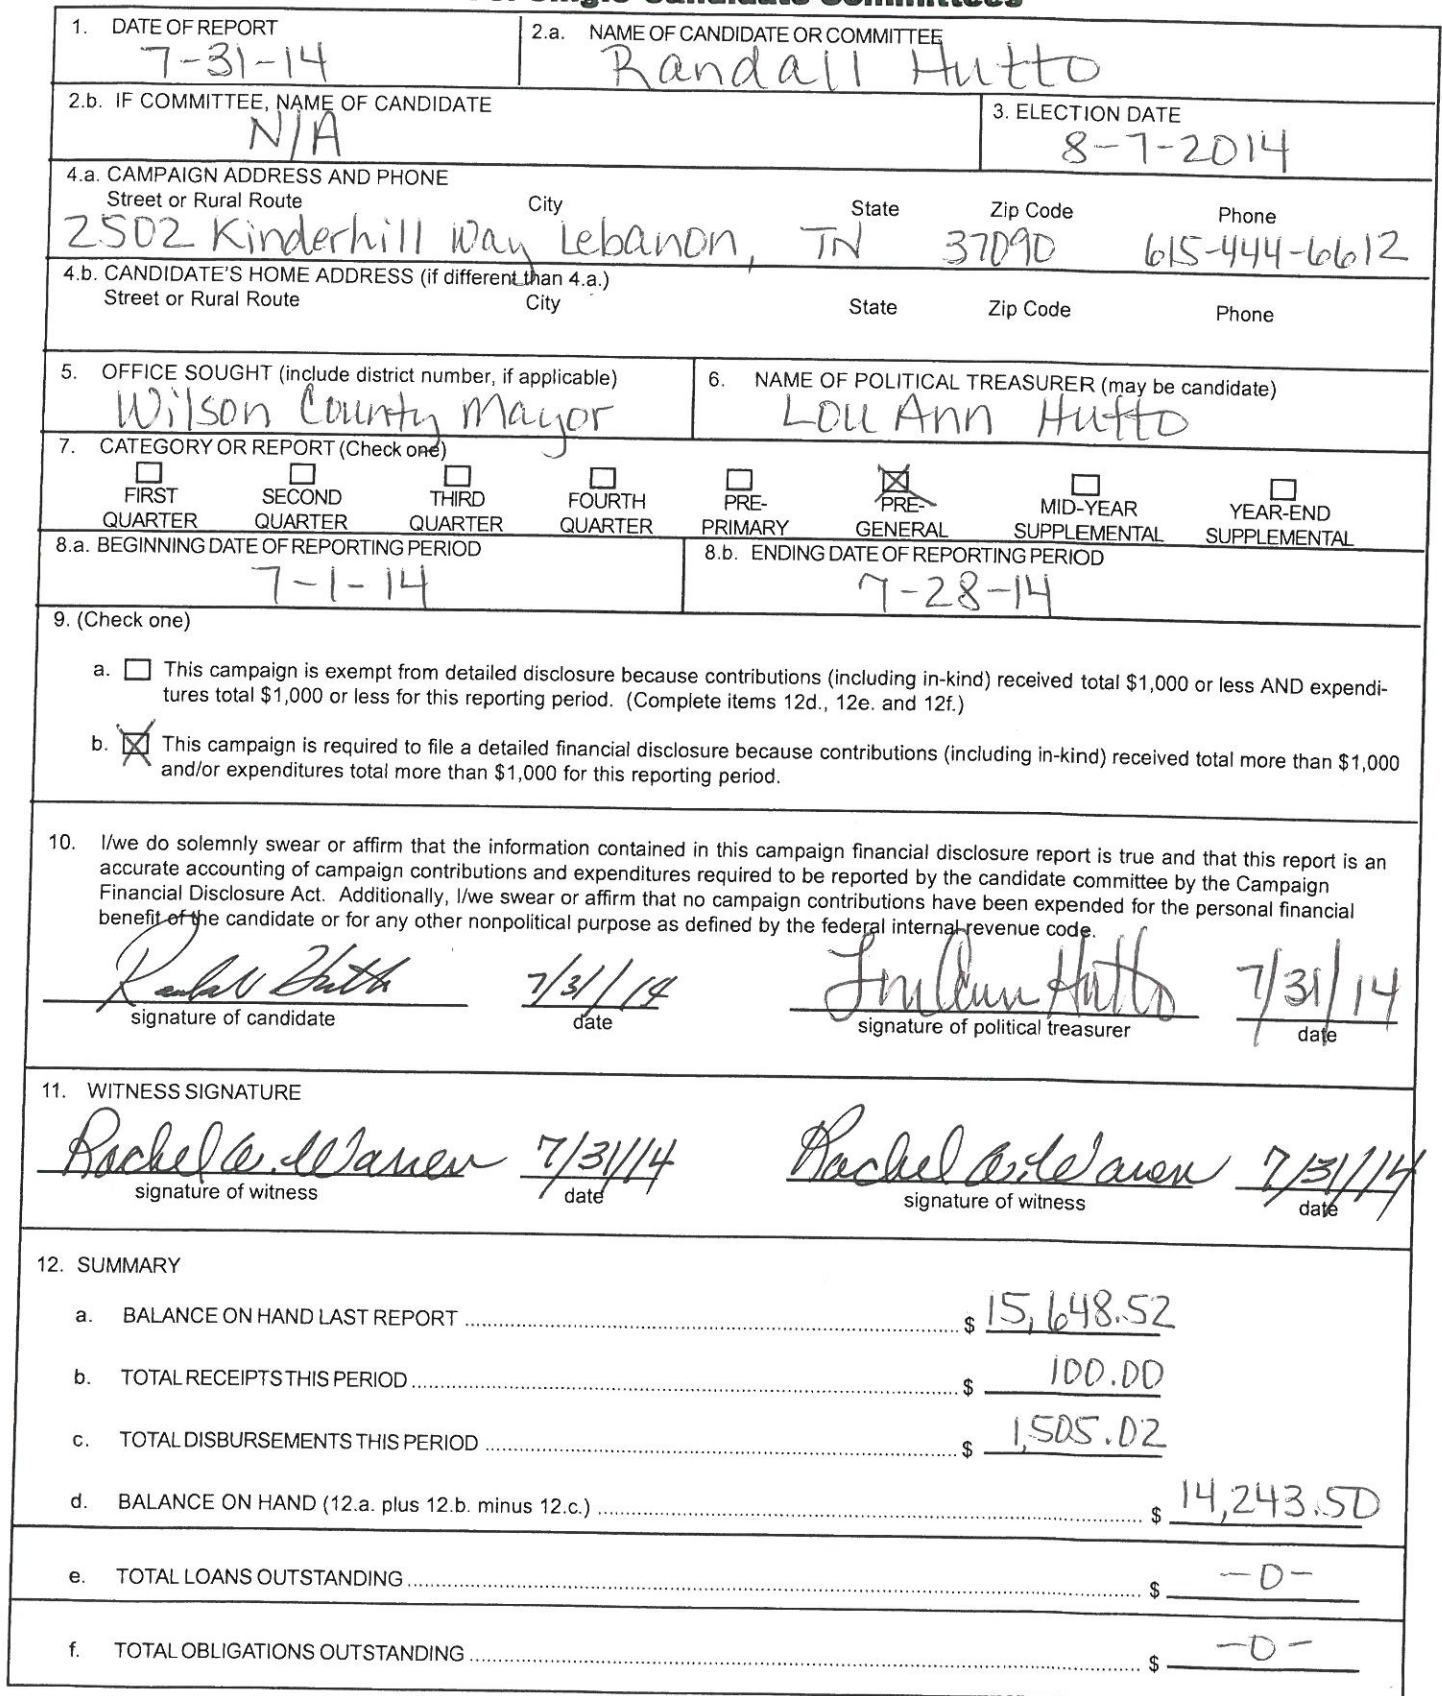 For Single-Candidate Committees
1. DATE OF REPORT
7-31-14
2.a. NAME OF CANDIDATE OR COMMITTEE
Randall Hutto
2.b. IF COMMITTEE, NAME OF CANDIDATE
N/A
3. ELECTION DATE
8-7-2014
4.a. CAMPAIGN ADDRESS AND PHONE
Street or Rural Route City State Zip Code Phone
2502 Kinderhill Way Lebanon, TN 37090 615-444-6612
4.b. CANDIDATE'S HOME ADDRESS (if different than 4.a.)
Street or Rural Route City State Zip Code Phone
5. OFFICE SOUGHT (include district number, if applicable)
Wilson County Mayor
6. NAME OF POLITICAL TREASURER (may be candidate)
Lou Ann Hutto
7. CATEGORY OR REPORT (Check one)
FIRST QUARTER
SECOND QUARTER
THIRD QUARTER
FOURTH QUARTER
PRE-PRIMARY
PRE-GENERAL
MID-YEAR SUPPLEMENTAL
YEAR-END SUPPLEMENTAL
8.a. BEGINNING DATE OF REPORTING PERIOD
7-1-14
8.b. ENDING DATE OF REPORTING PERIOD
7-28-14
9. (Check one)
a. This campaign is exempt from detailed disclosure because contributions (including in-kind) received total $1,000 or less AND expendi-
tures total $1,000 or less for this reporting period. (Complete items 12d., 12e. and 12f.)
b. This campaign is required to file a detailed financial disclosure because contributions (including in-kind) received total more than $1,000
and/or expenditures total more than $1,000 for this reporting period.
10. I/we do solemnly swear or affirm that the information contained in this campaign financial disclosure report is true and that this report is an
accurate accounting of campaign contributions and expenditures required to be reported by the candidate committee by the Campaign
Financial Disclosure Act. Additionally, I/we swear or affirm that no campaign contributions have been expended for the personal financial
benefit of the candidate or for any other nonpolitical purpose as defined by the federal internal revenue code.
Randall Hutto 7/31/14 Lou Ann Hutto 7/31/14
signature of candidate date signature of political treasurer date
11. WITNESS SIGNATURE
Rachel A. Warren 7/31/14 Rachel A. Warren 7/31/14
signature of witness date signature of witness date
12. SUMMARY
a. BALANCE ON HAND LAST REPORT $ 15,648.52
b. TOTAL RECEIPTS THIS PERIOD $ 100.00
c. TOTAL DISBURSEMENTS THIS PERIOD $ 1,505.02
d. BALANCE ON HAND (12.a. plus 12.b. minus 12.c.) $ 14,243.50
e. TOTAL LOANS OUTSTANDING $ -0-
f. TOTAL OBLIGATIONS OUTSTANDING $ -0-